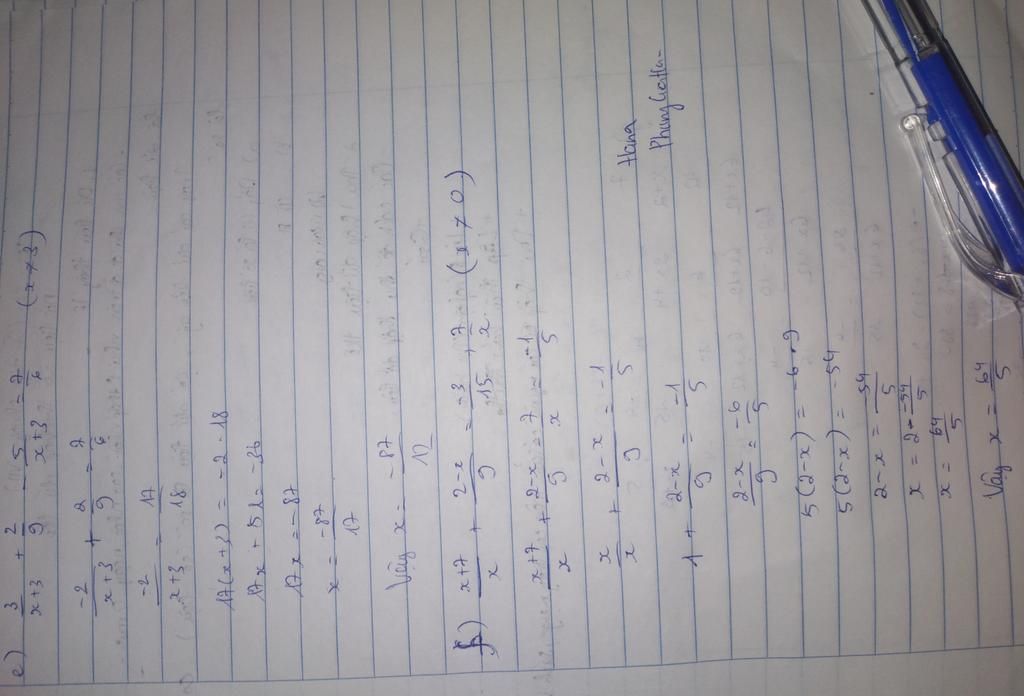 e) 3/(x+3) + 2/9 - 5/(x+3) = 7/6 (x ≠ 3)
-2/(x+3) + 2/9 = 7/6
-2/(x+3) = 17/18
17(x+3) = -2 . 18
17x + 51 = -36
17x = -87
x = -87/17
Vậy x = -87/17
f) (x+7)/x + (2-x)/9 = -3/15 + 7/x (x ≠ 0)
(x+7)/x + (2-x)/9 - 7/x = -1/5
x/x + (2-x)/9 = -1/5
1 + (2-x)/9 = -1/5
(2-x)/9 = -6/5
5(2-x) = -6.9
5(2-x) = -54
2-x = -54/5
x = 2 - -54/5
x = 64/5
Vậy x = 64/5
Hana